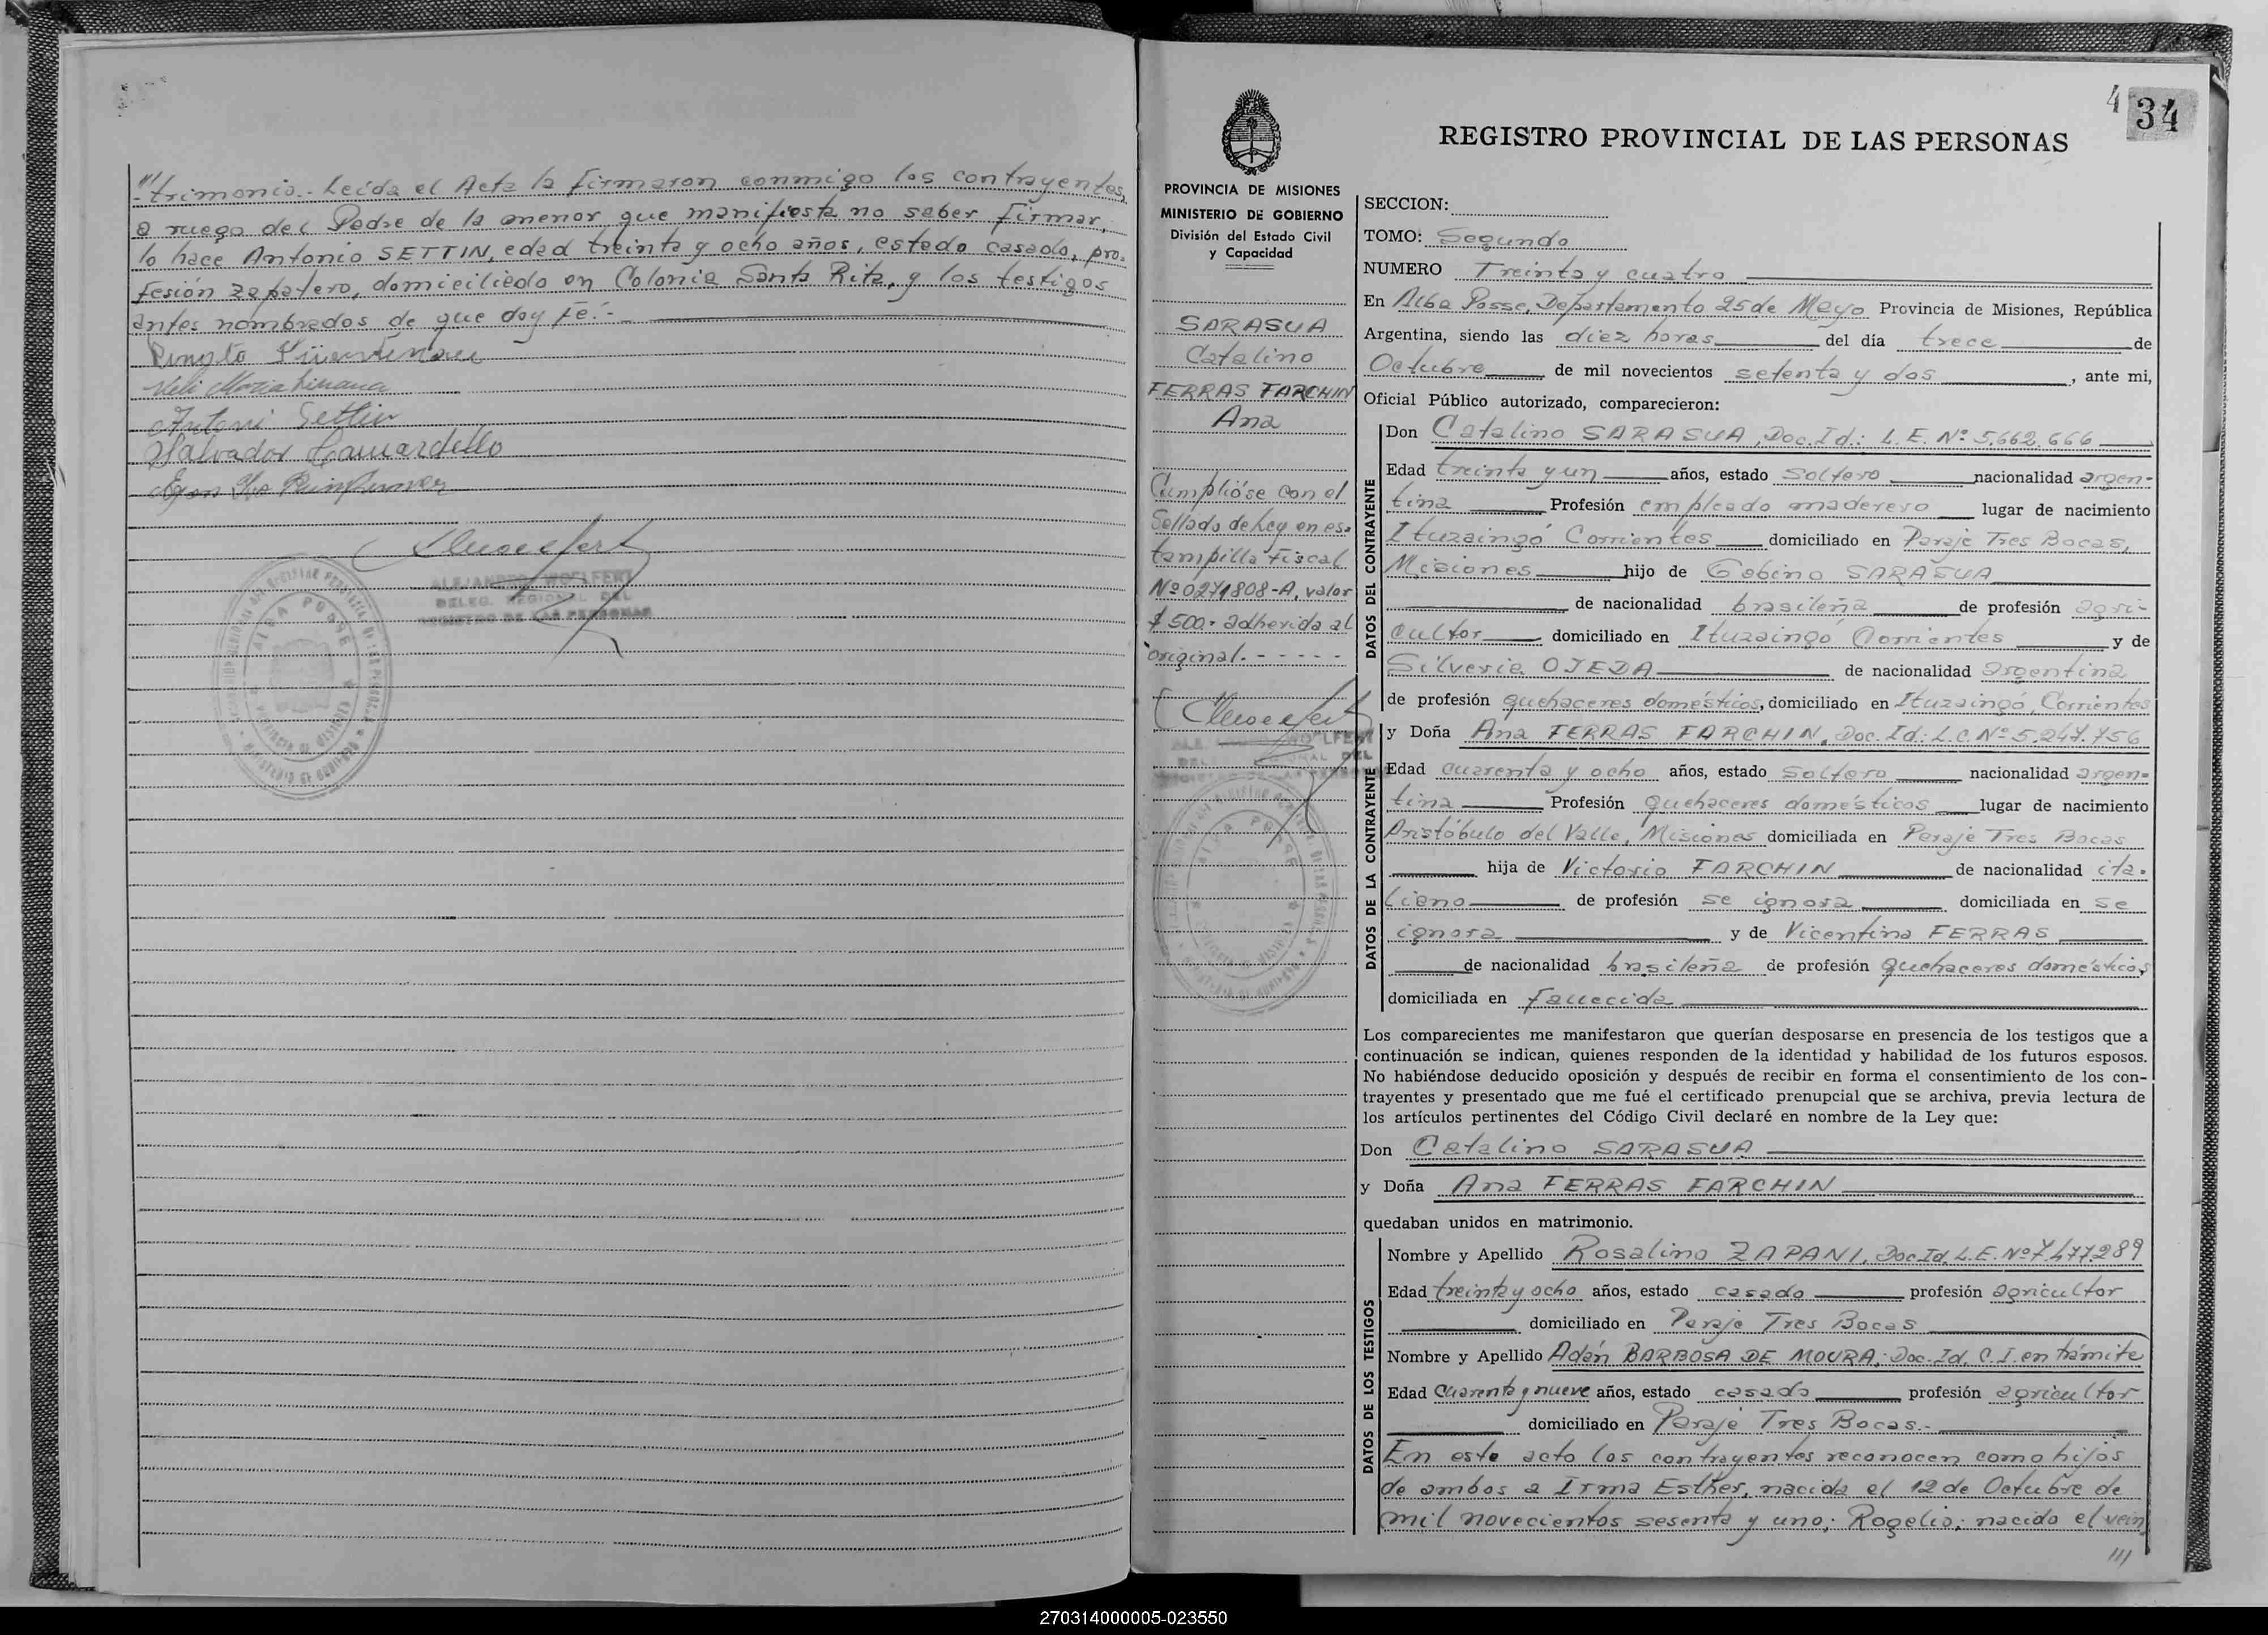 "/trimonio.- Leída el Acta la firmaron conmigo los contrayentes,
a ruego del Padre de la menor que manifiesta no saber firmar,
lo hace Antonio SETTIN, edad treinta y ocho años, estado casado, pro-
fesión zapatero, domiciliado en Colonia Santa Rita, y los testigos
antes nombrados de que doy fé.-
Antoni Settin
Salvador Camardello
ALEJANDRO WOLFERT
DELEG. REGIONAL DEL
REGISTRO DE LAS PERSONAS
ALBA POSSE
4 34
REGISTRO PROVINCIAL DE LAS PERSONAS
PROVINCIA DE MISIONES
MINISTERIO DE GOBIERNO
División del Estado Civil
y Capacidad
SARASUA
Catalino
FERRAS FARCHIN
Ana
Cumplióse con el
Sellado de Ley en es-
tampilla Fiscal
Nº 0271808-A, valor
$ 500.- adherida al
original. - - - - -
SECCION:
TOMO: Segundo
NUMERO Treinta y cuatro
En Alba Posse, Departamento 25 de Mayo Provincia de Misiones, República
Argentina, siendo las diez horas del día trece de
Octubre de mil novecientos setenta y dos, ante mi,
Oficial Público autorizado, comparecieron:
DATOS DEL CONTRAYENTE
Don Catalino SARASUA, Doc. Id.: L. E. Nº 5.662.666
Edad treinta y un años, estado soltero nacionalidad argen-
tina Profesión empleado maderero lugar de nacimiento
Ituzaingó Corrientes domiciliado en Paraje Tres Bocas,
Misiones hijo de Gabino SARASUA
de nacionalidad brasileña de profesión agri-
cultor domiciliado en Ituzaingó Corrientes y de
Silveria OJEDA de nacionalidad argentina
de profesión quehaceres domésticos, domiciliado en Ituzaingó, Corrientes
DATOS DE LA CONTRAYENTE
y Doña Ana FERRAS FARCHIN, Doc. Id.: L.C. Nº 5.247.756
Edad cuarenta y ocho años, estado soltera nacionalidad argen-
tina Profesión quehaceres domésticos lugar de nacimiento
Aristóbulo del Valle, Misiones domiciliada en Paraje Tres Bocas
hija de Victorio FARCHIN de nacionalidad ita-
liano de profesión se ignora domiciliada en se
ignora y de Vicentina FERRAS
de nacionalidad brasileña de profesión quehaceres domésticos
domiciliada en Fallecida
Los comparecientes me manifestaron que querían desposarse en presencia de los testigos que a
continuación se indican, quienes responden de la identidad y habilidad de los futuros esposos.
No habiéndose deducido oposición y después de recibir en forma el consentimiento de los con-
trayentes y presentado que me fué el certificado prenupcial que se archiva, previa lectura de
los artículos pertinentes del Código Civil declaré en nombre de la Ley que:
Don Catalino SARASUA
y Doña Ana FERRAS FARCHIN
quedaban unidos en matrimonio.
DATOS DE LOS TESTIGOS
Nombre y Apellido Rosalino ZAPANI, Doc. Id. L.E. Nº 7.477.289
Edad treinta y ocho años, estado casado profesión agricultor
domiciliado en Paraje Tres Bocas
Nombre y Apellido Adán BARBOSA DE MOURA; Doc. Id. C.I. en trámite
Edad cuarenta y nueve años, estado casado profesión agricultor
domiciliado en Paraje Tres Bocas.-
En este acto los contrayentes reconocen como hijos
de ambos a Irma Esther, nacida el 12 de Octubre de
mil novecientos sesenta y uno; Rogelio; nacido el vein
///
270314000005-023550